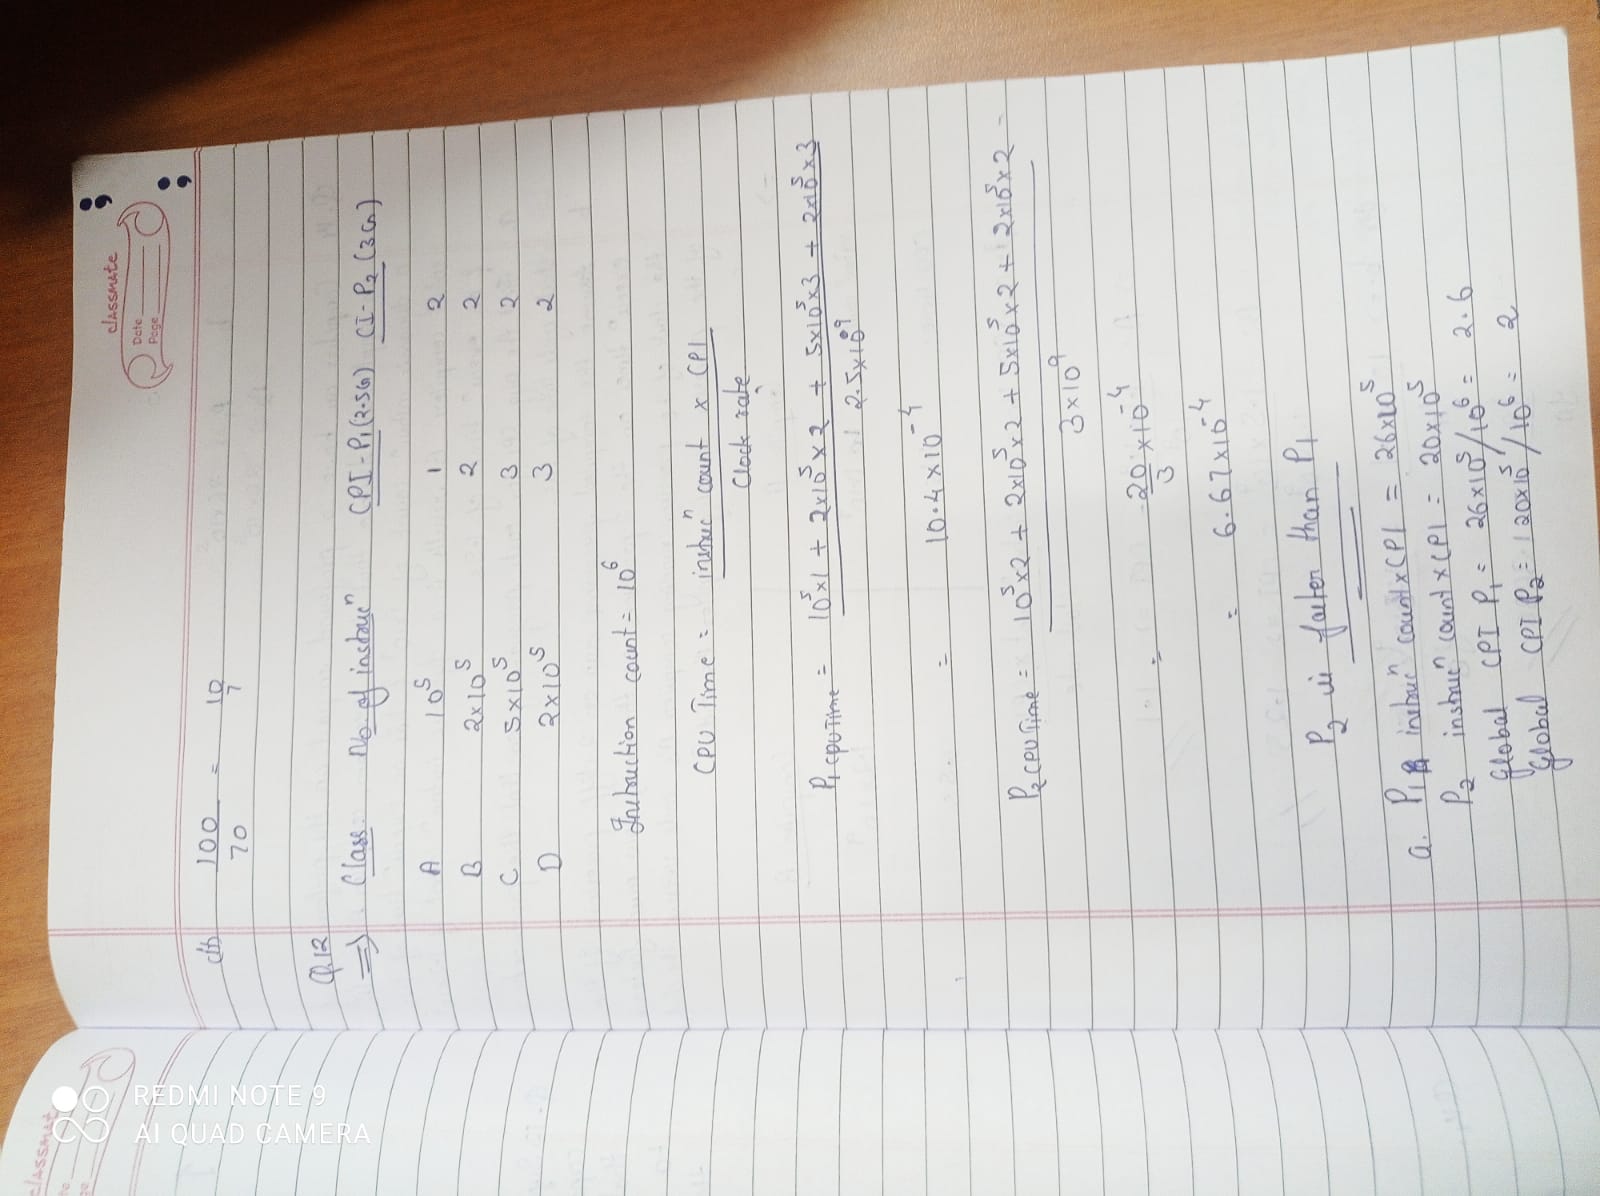 classmate
Date
Page
(b) 100/70 = 10/7
Q.12
=> Class No of instrucⁿ CPI-P₁(2.5G) CI-P₂(3Gn)
A 10⁵ 1 2
B 2×10⁵ 2 2
C 5×10⁵ 3 2
D 2×10⁵ 3 2
Instruction count = 10⁶
CPU Time = instrucⁿ count × CPI / Clock rate
P₁ CPU Time = 10⁵×1 + 2×10⁵×2 + 5×10⁵×3 + 2×10⁵×3 / 2.5×10⁹
= 10.4×10⁻⁴
P₂ CPU Time = 10⁵×2 + 2×10⁵×2 + 5×10⁵×2 + 2×10⁵×2 / 3×10⁹
= 20/3 ×10⁻⁴
= 6.67×10⁻⁴
P₂ is faster than P₁
a. P₁ instrucⁿ count×CPI = 26×10⁵
P₂ instrucⁿ count×CPI = 20×10⁵
Global CPI P₁ = 26×10⁵/10⁶ = 2.6
Global CPI P₂ = 20×10⁵/10⁶ = 2
REDMI NOTE 9
AI QUAD CAMERA